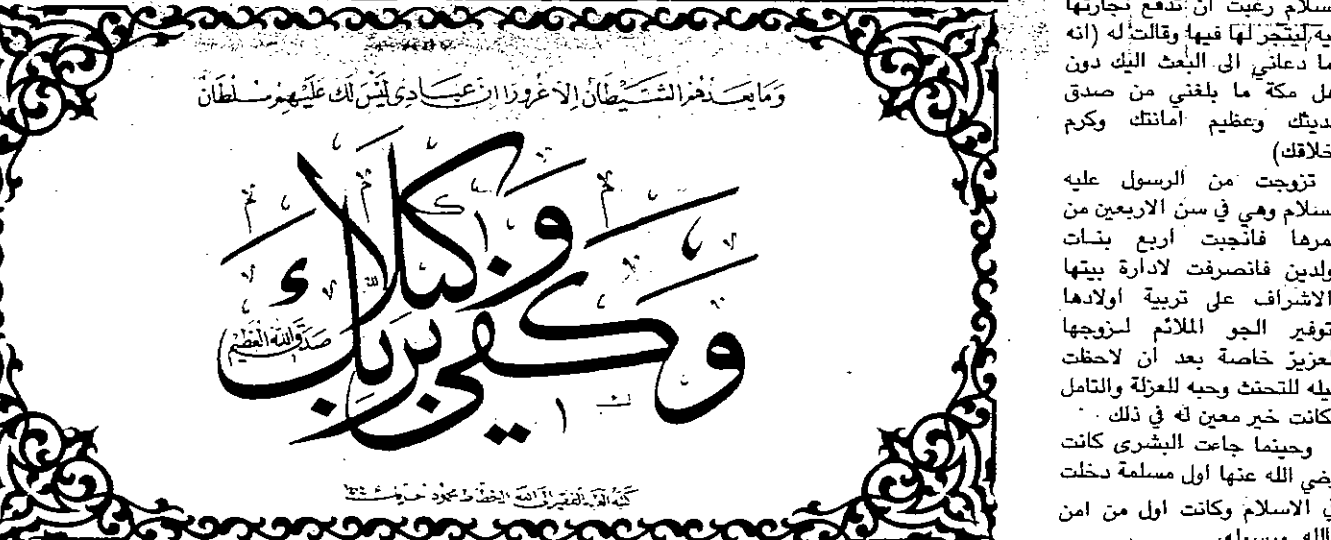 وَمَا يَعِدُهُمُ الشَّيْطَانُ إِلَّا غُرُورًا إِنَّ عِبَادِي لَيْسَ لَكَ عَلَيْهِمْ سُلْطَانٌ
وكفى بربك وكيلا
صدق الله العظيم
كتبه الفقير الى الله الخطاط محمود
سلام رغبت ان تدفع تجارتها
يه ليتجر لها فيها وقالت له (انه
ما دعاني الى البعث اليك دون
هل مكة ما بلغني من صدق
ديثك وعظيم امانتك وكرم
خلاقك)
تزوجت من الرسول عليه
سلام وهي في سن الاربعين من
مرها فانجبت اربع بنات
ولدين فانصرفت لادارة بيتها
الاشراف على تربية اولادها
توفير الجو الملائم لزوجها
لعزيز خاصة بعد ان لاحظت
يله للتحنث وحبه للعزلة والتامل
كانت خير معين له في ذلك .
وحينما جاءت البشرى كانت
ضي الله عنها اول مسلمة دخلت
ي الاسلام وكانت اول من امن
الله ورسوله